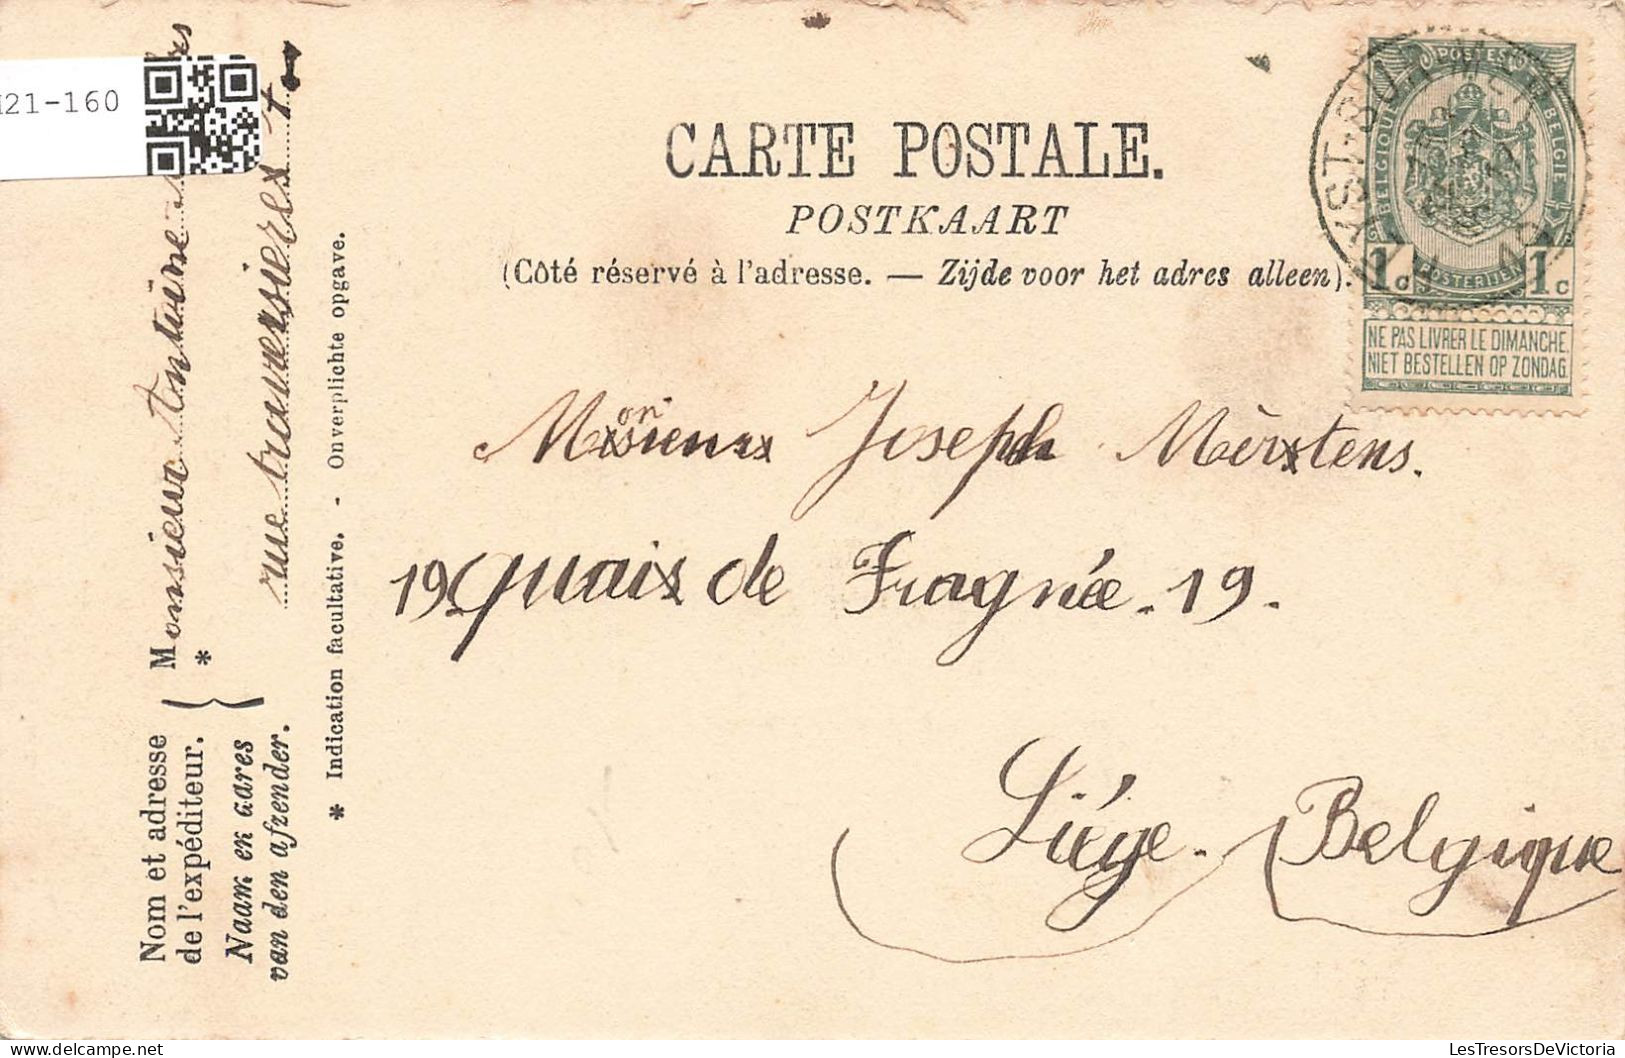 121-160
CARTE POSTALE.
POSTKAART
(Côté réservé à l'adresse. — Zijde voor het adres alleen).
POSTES
BELGIQUE
BELGIE
POSTERIJEN
1c 1c
NE PAS LIVRER LE DIMANCHE
NIET BESTELLEN OP ZONDAG
Joseph Mèrxtens.
19 Quais de Fragnée. 19.
Liége. Belgique
Nom et adresse
de l'expéditeur.
Naam en adres
van den afzender.
Monsieur Antoine
*
rue traversières
* Indication facultative. - Onverplichte opgave.
LesTresorsDeVictoria